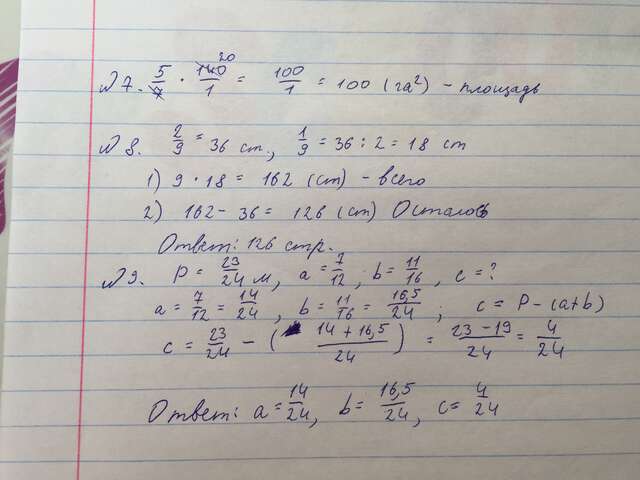 №7. 5/7 · 140/1 20 = 100/1 = 100 (га²) - площадь
№8. 2/9 = 36 ст., 1/9 = 36 : 2 = 18 ст
1) 9 · 18 = 162 (ст) - всего
2) 162 - 36 = 126 (ст) Осталось
Ответ: 126 стр.
№9. P = 23/24 м, a = 7/12; b = 11/16, c = ?
a = 7/12 = 14/24, b = 11/16 = 16,5/24; c = P - (a+b)
c = 23/24 - (14 + 16,5/24) = 23 - 19/24 = 4/24
Ответ: a = 14/24, b = 16,5/24, c = 4/24